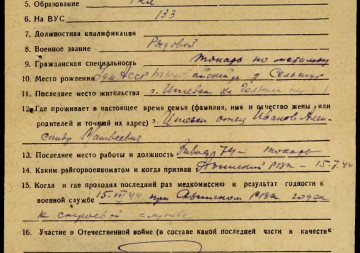 5. Образование 7 кл
6. На ВУС 133
7. Должностная квалификация
8. Военное звание Рядовой
9. Гражданская специальность Токарь по металлу
10. Место рождения УдмАССР
11. Последнее место жительства г. Ижевск
12. Где проживает в настоящее время семья (фамилия, имя и отчество жены или
родителей и точный их адрес) г. Ижевск отец Иванов
Матвеевич
13. Последнее место работы и должность Завод 74 – токарь
14. Каким райгорвоенкоматом и когда призван РВК – 15-7.44
15. Когда и где проходил последний раз медкомиссию и результат годности к
военной службе 15.VII 44 при РВК годен
к строевой службе
16. Участие в Отечественной войне (в составе какой последней части в качестве